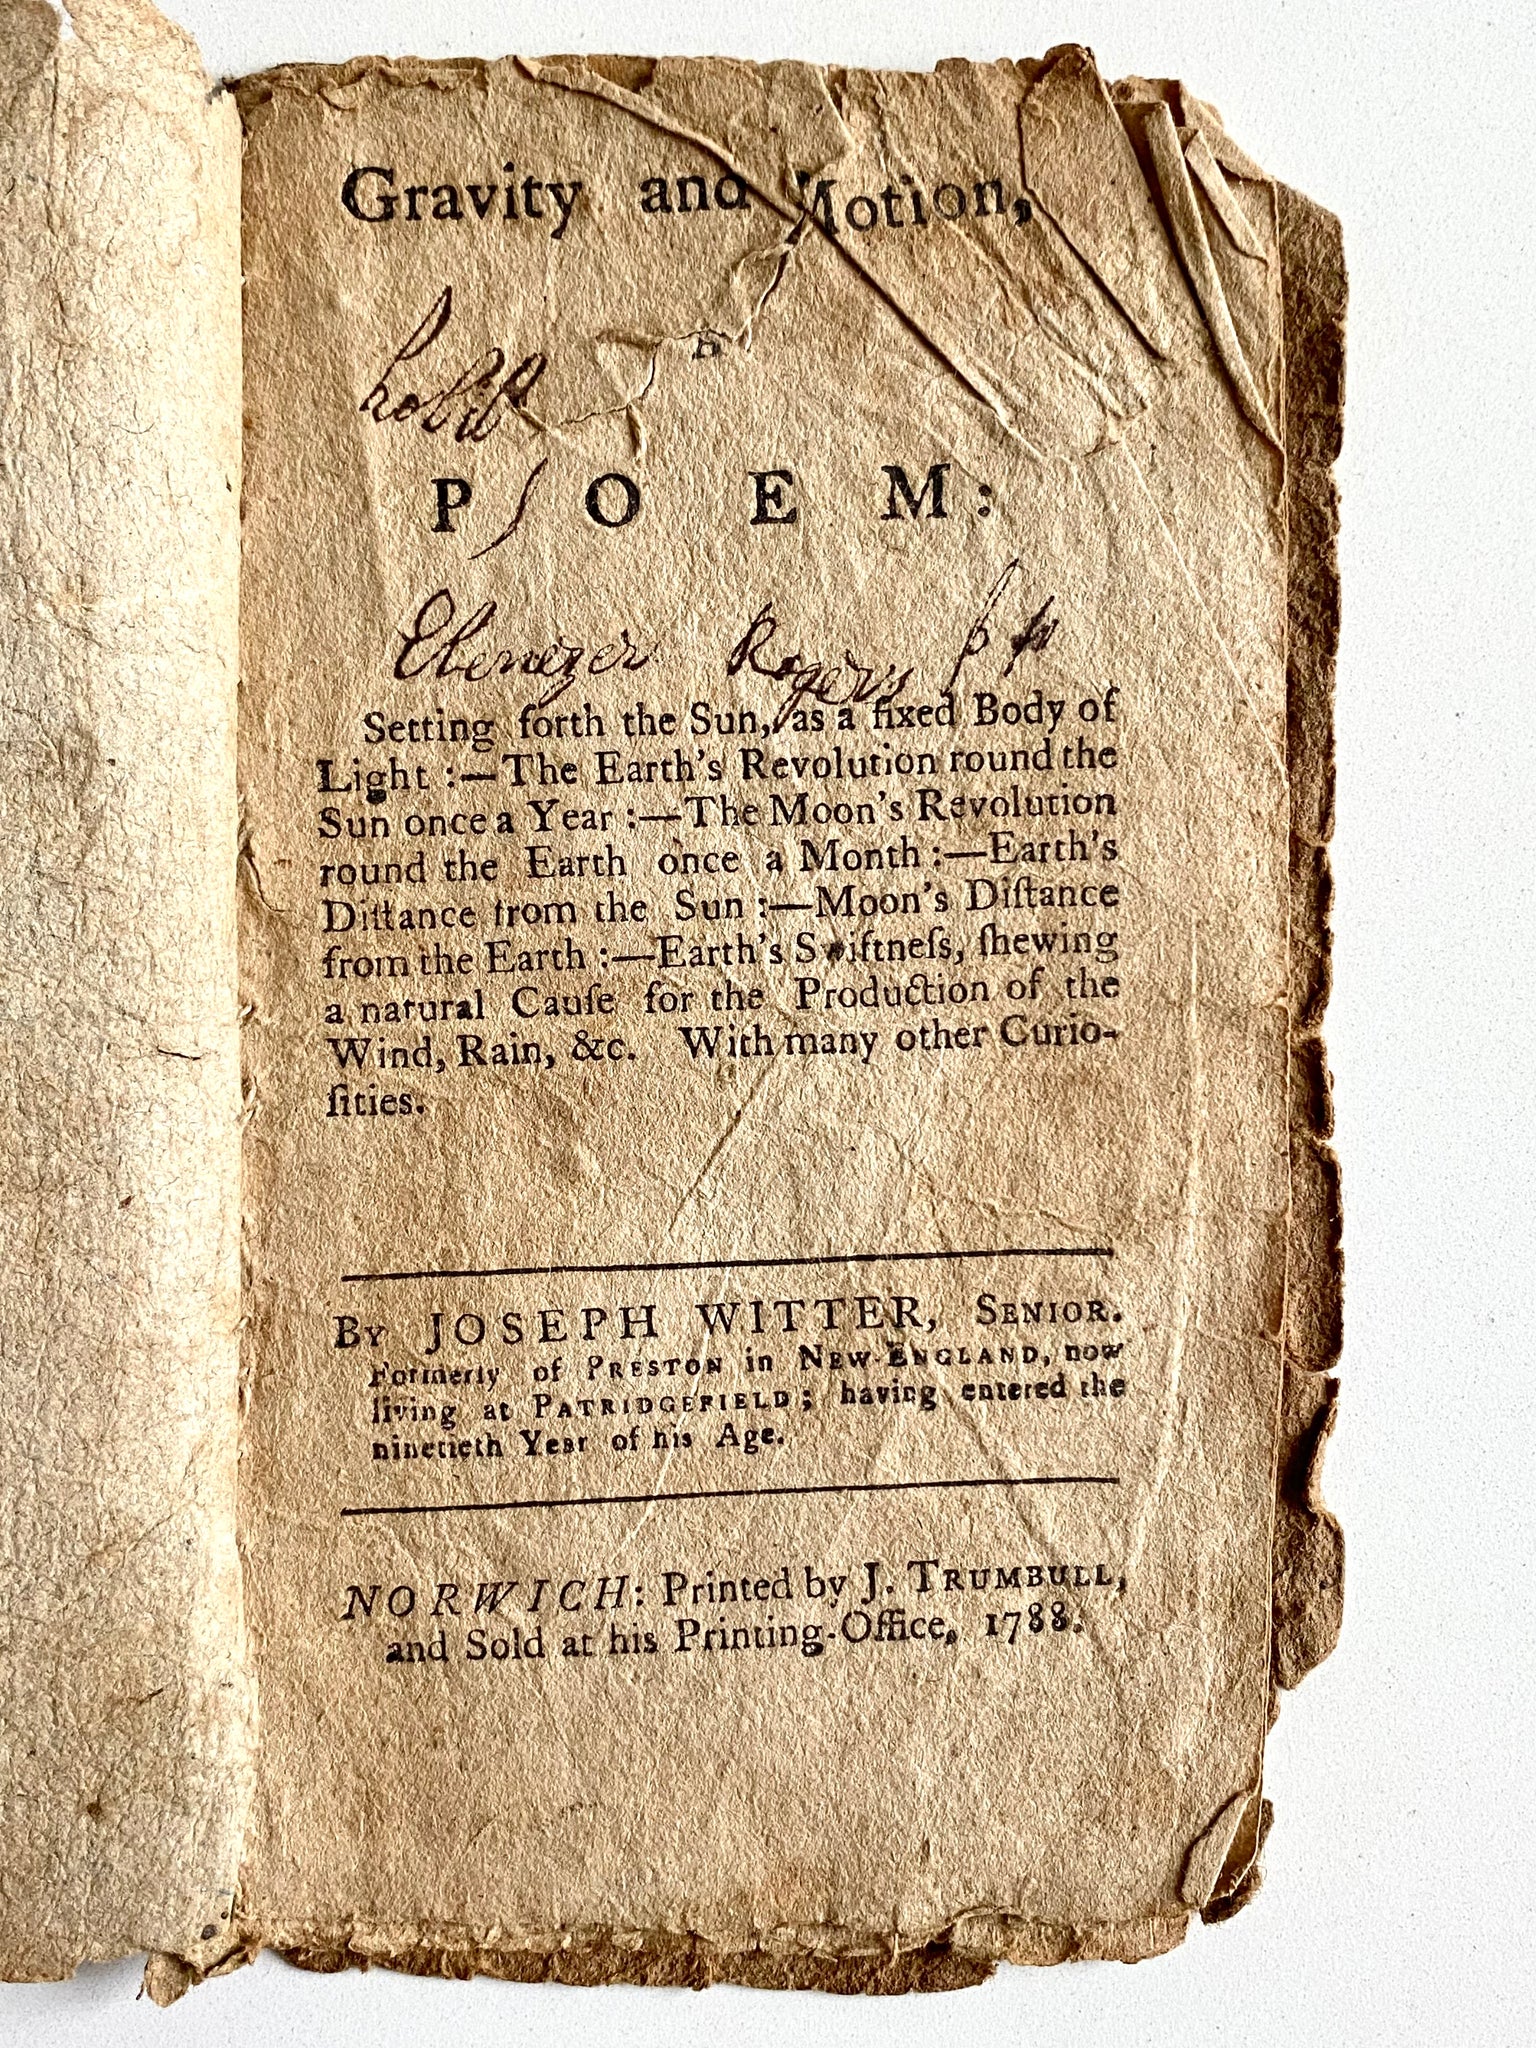 Gravity and Motion,
P O E M:
Ebenezer Rogers
Setting forth the Sun, as a fixed Body of
Light :—The Earth's Revolution round the
Sun once a Year :—The Moon's Revolution
round the Earth once a Month :—Earth's
Diſtance from the Sun :—Moon's Diſtance
from the Earth :—Earth's Swiftneſs, ſhewing
a natural Cauſe for the Production of the
Wind, Rain, &c. With many other Curio-
ſities.
By JOSEPH WITTER, Senior.
Formerly of Preston in New-England, now
living at Patridgefield; having entered the
ninetieth Year of his Age.
NORWICH: Printed by J. Trumbull,
and Sold at his Printing-Office, 1788.